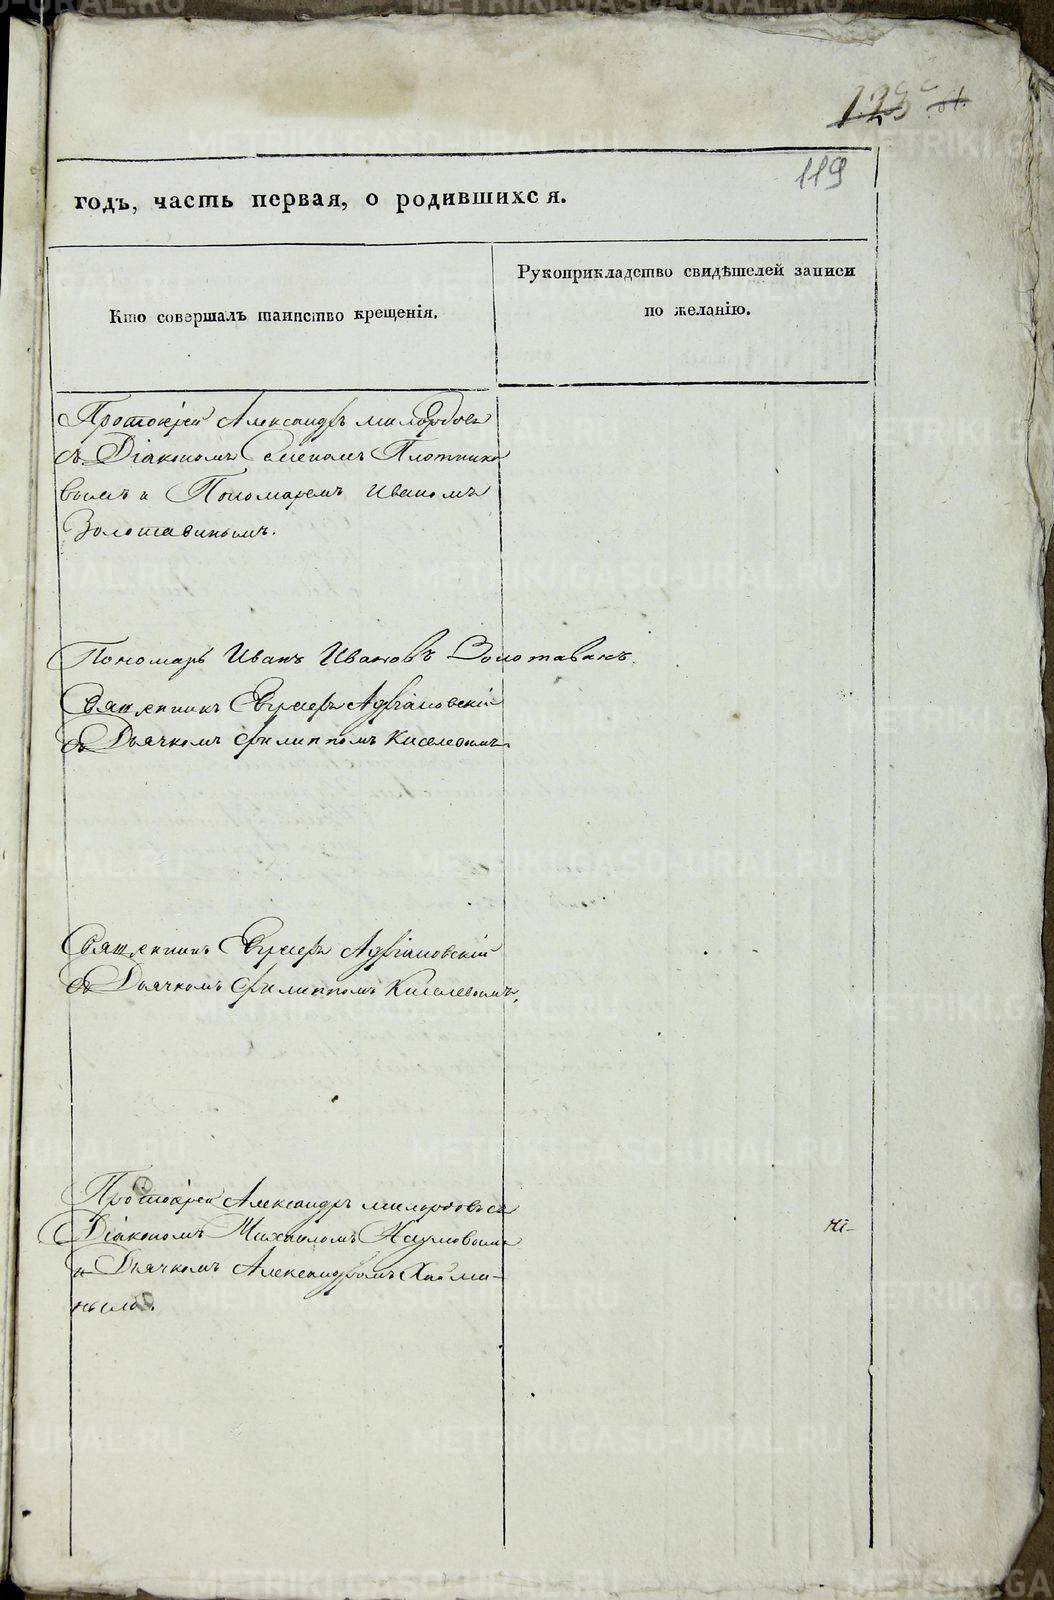 119
годъ, часть первая, о родившихся.
Кто совершалъ таинство крещенія.
Рукоприкладство свидѣтелей записи
по желанію.
Протоіерей Александръ Милордовъ
съ Діакономъ Семеномъ Плотнико
вымъ и Пономаремъ Иваномъ
Золотавинымъ.
Пономарь Иванъ Ивановъ Золотавинъ.
Священникъ Адріановскій
съ Дьячкомъ Филиппомъ Киселевымъ.
Священникъ Адріановскій
съ Дьячкомъ Филиппомъ Киселевымъ.
Протоіерей Александръ Милордовъ съ
Діакономъ Михаиломъ Наумовымъ
и Дьячкомъ Александромъ
METRIKI.GASO-URAL.RU